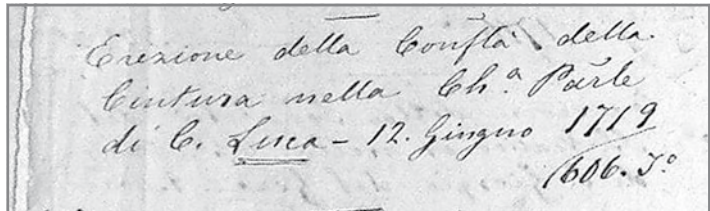 Erezione della Confta della
Cintura nella Ch.ª Parle
di C. Luca - 12. Giugno 1719
606. T.º